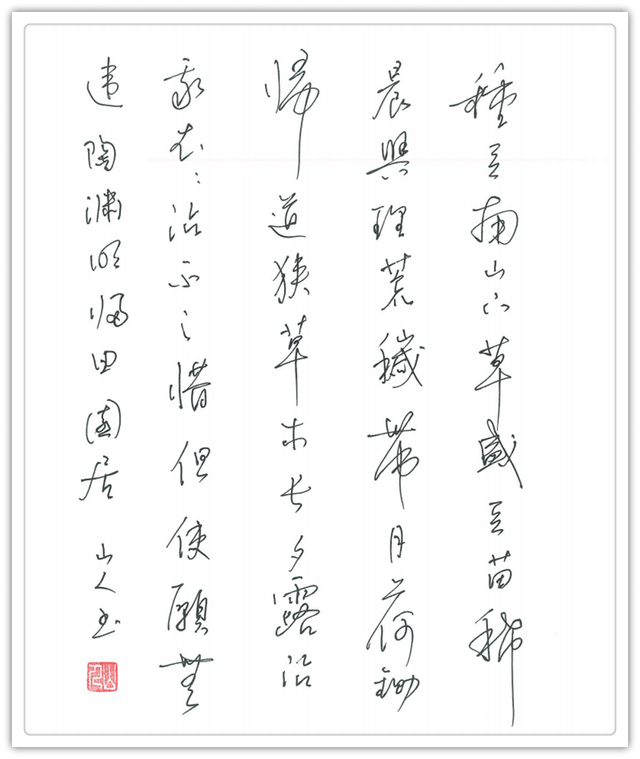 種豆南山下草盛豆苗稀
晨興理荒穢帶月荷鋤
歸道狹草木長夕露沾
我衣〻沾不足惜但使願無
違陶淵明歸田園居 山人书